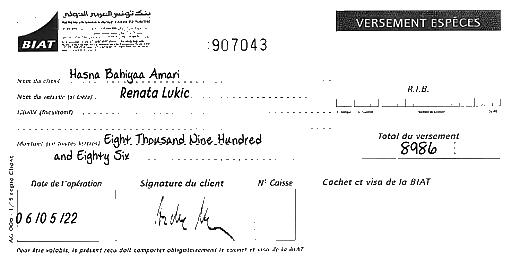 بنك تونس العربي الدولي
BIAT
VERSEMENT ESPÈCES
907043
Nom du client Hasna Bahiyaa Amari
Nom du verseur (si tiers) Renata Lukic
R.I.B.
Libellé (facultatif)
Montant (en toutes lettres) Eight Thousand Nine Hundred
and Eighty Six
Total du versement
8986
Date de l'opération
Signature du client
N° Caisse
Cachet et visa de la BIAT
06/05/22
Pour être valable, le présent reçu doit comporter obligatoirement le cachet et visa de la BIAT